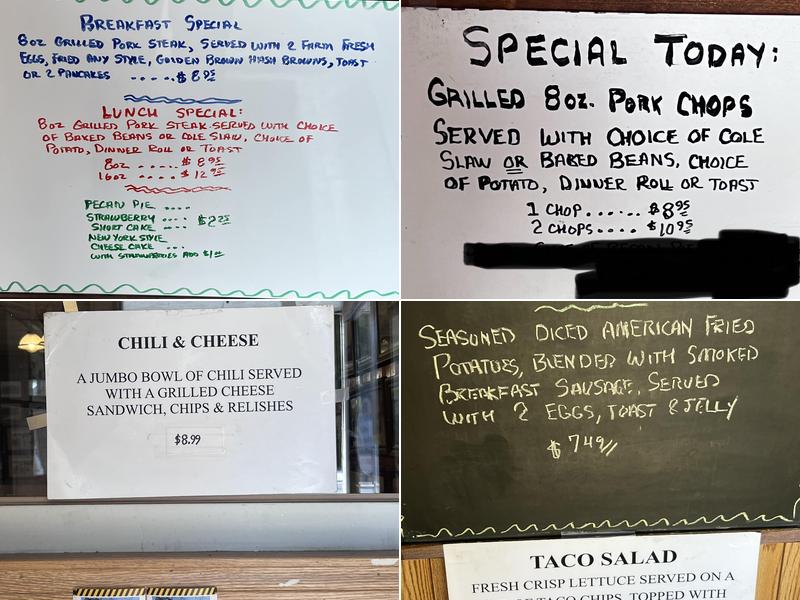 BREAKFAST SPECIAL
8oz GRILLED PORK STEAK, SERVED WITH 2 FARM FRESH
EGGS, FRIED ANY STYLE, GOLDEN BROWN HASH BROWNS, TOAST
OR 2 PANCAKES ----- $ 8.95
LUNCH SPECIAL:
8oz GRILLED PORK STEAK SERVED WITH CHOICE
OF BAKED BEANS OR COLE SLAW, CHOICE OF
POTATO, DINNER ROLL OR TOAST
8oz ..... $ 8 95
16oz ..... $ 12 95
PECAN PIE ....
STRAWBERRY .....
SHORT CAKE ....
NEW YORK STYLE
CHEESE CAKE ....
WITH STRAWBERRIES ADD
SPECIAL TODAY:
GRILLED 8oz. PORK CHOPS
SERVED WITH CHOICE OF COLE
SLAW OR BAKED BEANS, CHOICE
OF POTATO, DINNER ROLL OR TOAST
1 CHOP...... $8 95
2 CHOPS.... $10 95
CHILI & CHEESE
A JUMBO BOWL OF CHILI SERVED
WITH A GRILLED CHEESE
SANDWICH, CHIPS & RELISHES
$8.99
SEASONED DICED AMERICAN FRIED
POTATOES, BLENDED WITH SMOKED
BREAKFAST SAUSAGE, SERVED
WITH 2 EGGS, TOAST & JELLY
$ 7 49
TACO SALAD
FRESH CRISP LETTUCE SERVED ON A
TACO CHIPS, TOPPED WITH